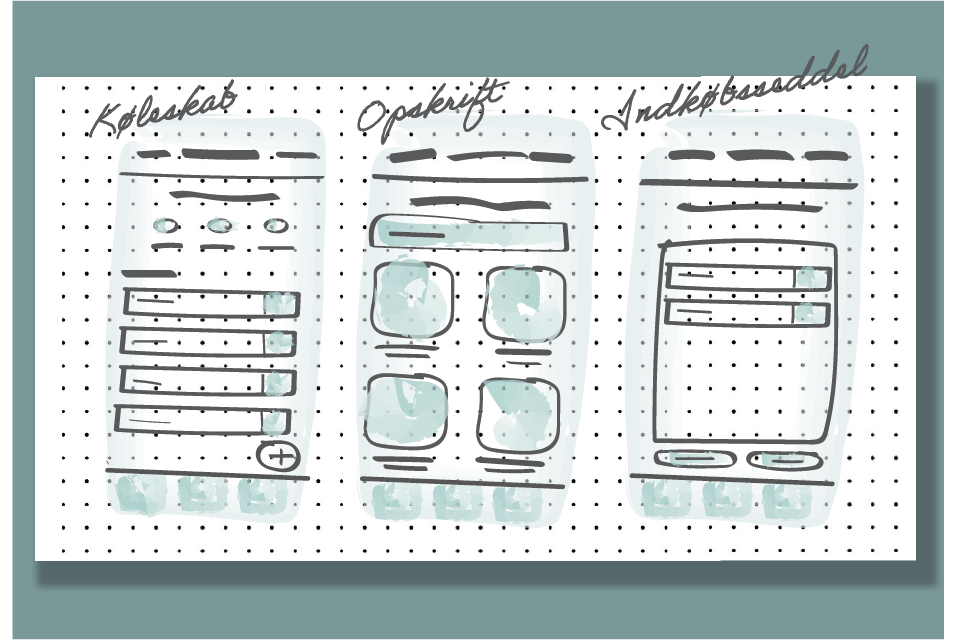 Køleskab
Opskrift
Indkøbsseddel